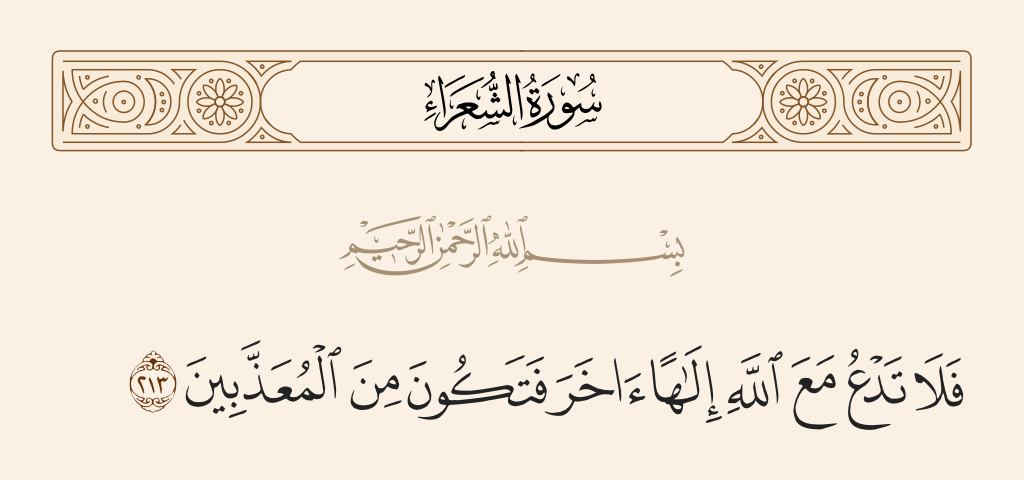 سُورَةُ الشُّعَرَاءِ
بِسْمِ ٱللَّهِ ٱلرَّحْمَٰنِ ٱلرَّحِيمِ
فَلَا تَدْعُ مَعَ ٱللَّهِ إِلَٰهًا ءَاخَرَ فَتَكُونَ مِنَ ٱلْمُعَذَّبِينَ ٢١٣